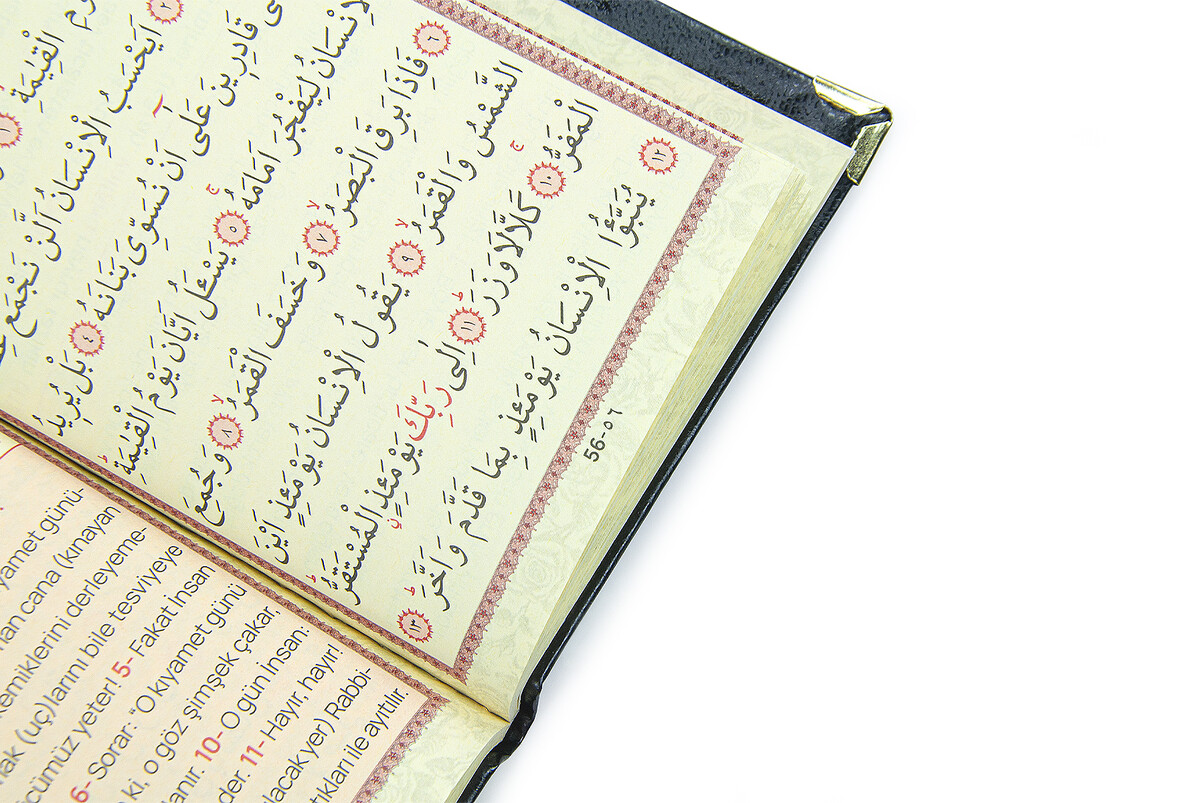 وِمِ الْقِيٰمَةِ ١
٢ اَيَحْسَبُ الْاِنْسَانُ اَلَّنْ نَجْمَعَ
قَادِرِينَ عَلٰٓى اَنْ نُسَوِّىَ بَنَانَهُ ٤ بَلْ يُرِيدُ
الْاِنْسَانُ لِيَفْجُرَ اَمَامَهُ ٥ يَسْـَٔلُ اَيَّانَ يَوْمُ الْقِيٰمَةِ
٦ فَاِذَا بَرِقَ الْبَصَرُ ٧ وَخَسَفَ الْقَمَرُ ٨ وَجُمِعَ
الشَّمْسُ وَالْقَمَرُ ٩ يَقُولُ الْاِنْسَانُ يَوْمَئِذٍ اَيْنَ
الْمَفَرُّ ١٠ كَلَّا لَا وَزَرَ ١١ اِلٰى رَبِّكَ يَوْمَئِذٍ الْمُسْتَقَرُّ
١٢ يُنَبَّؤُا الْاِنْسَانُ يَوْمَئِذٍ بِمَا قَدَّمَ وَاَخَّرَ ١٣
56-٥٦
yamet günü-
nan cana (kınayan
kemiklerini derleyeme-
mak (uç)larını bile tesviyeye
cümüz yeter! 5- Fakat İnsan
6- Sorar: “O kıyamet günü
ki, o göz şimşek çakar,
lanır. 10- O gün İnsan:
der. 11- Hayır, hayır!
lacak yer) Rabbi-
tıkları ile ayıtılır.